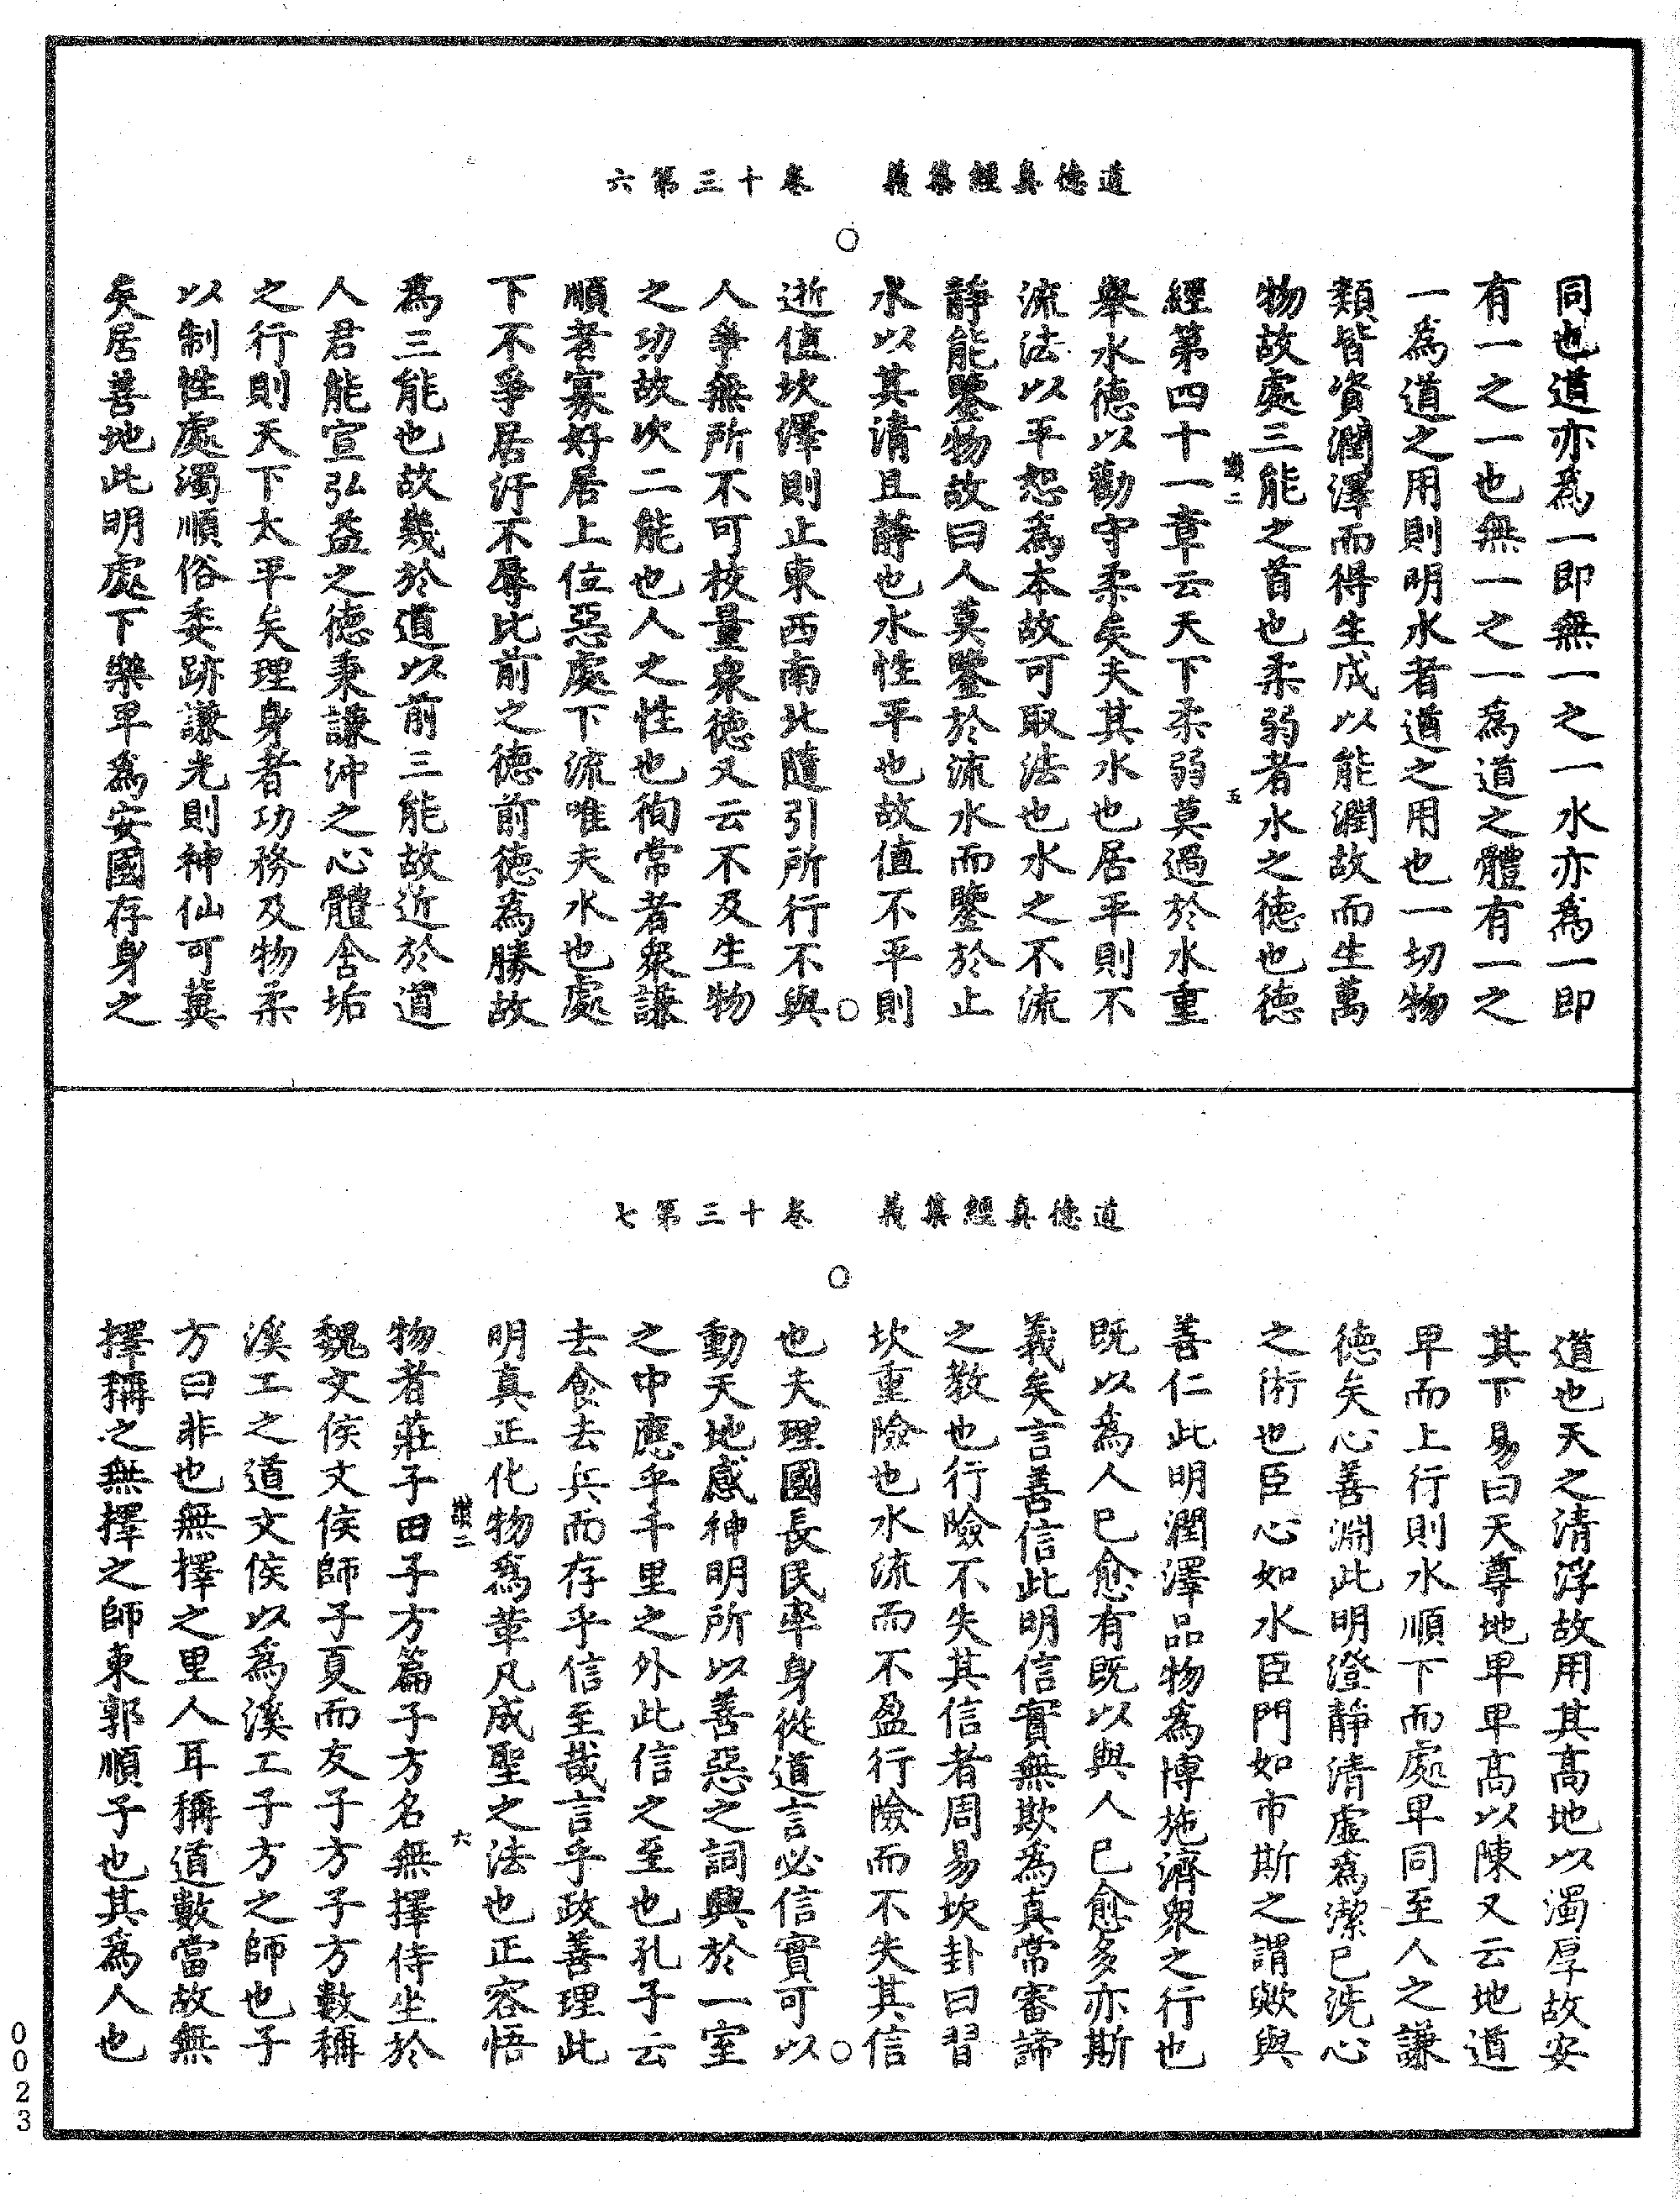 道德真經集義　卷十三第六
同也道亦爲一即無一之一水亦爲一即
有一之一也無一之一爲道之體有一之
一爲道之用則明水者道之用也一切物
類皆資潤澤而得生成以能潤故而生萬
物故處三能之首也柔弱者水之德也德
讃二　五
經第四十一章云天下柔弱莫過於水重
舉水德以勸守柔矣夫其水也居平則不
流法以平恕爲本故可取法也水之不流
靜能鑒物故曰人莫鑒於流水而鑒於止
水以其清且靜也水性平也故值不平則
逝值坎澤則止東西南北隨引所行不與
人爭無所不可校量衆德又云不及生物
之功故次二能也人之性也徇常者衆謙
順者寡好居上位惡處下流唯夫水也處
下不爭居汙不辱比前之德前德爲勝故
爲三能也故幾於道以前三能故近於道
人君能宣弘益之德秉謙沖之心體含垢
之行則天下太平矣理身者功務及物柔
以制性處濁順俗委跡謙光則神仙可冀
矣居善地此明處下樂卑爲安國存身之
道德真經集義　卷十三第七
道也天之清浮故用其高地以濁厚故安
其下易曰天尊地卑卑高以陳又云地道
卑而上行則水順下而處卑同至人之謙
德矣心善淵此明澄靜清虛爲潔已洗心
之術也臣心如水臣門如市斯之謂歟與
善仁此明潤澤品物爲博施濟衆之行也
既以爲人已愈有既以與人已愈多亦斯
義矣言善信此明信實無欺爲真常審諦
之教也行險不失其信者周易坎卦曰習
坎重險也水流而不盈行險而不失其信
也夫理國長民率身從道言必信實可以
動天地感神明所以善惡之詞興於一室
之中應乎千里之外此信之至也孔子云
去食去兵而存乎信至哉言乎政善理此
明真正化物爲革凡成聖之法也正容悟
讃二　六
物者莊子田子方篇子方名無擇侍坐於
魏文侯文侯師子夏而友子方子方數稱
溪工之道文侯以爲溪工子方之師也子
方曰非也無擇之里人耳稱道數當故無
擇稱之無擇之師東郭順子也其爲人也
0023